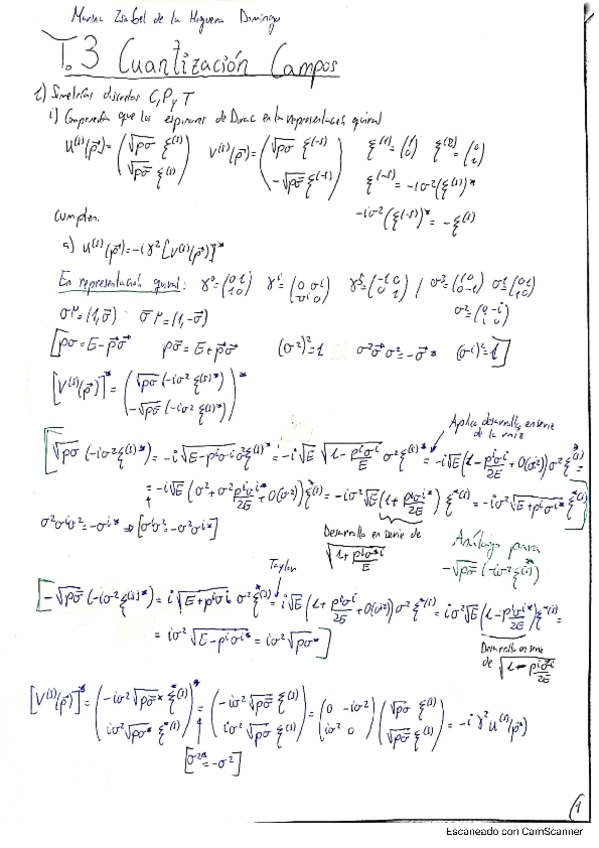 Marina Isabel de la Higuera Domingo
T.3 Cuantización Campos
1) Simetrías discretas C, P y T
i) Comprueba que los espinores de Dirac en la representación quiral
u⁽ˢ⁾(p⃗) = (√pσ ξ⁽ˢ⁾ ; √pσ̄ ξ⁽ˢ⁾) v⁽ˢ⁾(p⃗) = (√pσ ξ⁽⁻ˢ⁾ ; -√pσ̄ ξ⁽⁻ˢ⁾) ξ⁽¹⁾ = (1 ; 0) ξ⁽²⁾ = (0 ; 1)
ξ⁽⁻ˢ⁾ = -iσ²(ξ⁽ˢ⁾)*
-iσ²(ξ⁽⁻ˢ⁾)* = -ξ⁽ˢ⁾
cumplen.
a) u⁽ˢ⁾(p⃗) = -iγ²[v⁽ˢ⁾(p⃗)]*
En representación quiral: γ⁰ = (0 1 ; 1 0) γⁱ = (0 σⁱ ; -σⁱ 0) γ⁵ = (-1 0 ; 0 1) / σ³ = (1 0 ; 0 -1) σ¹ = (0 1 ; 1 0)
σ² = (0 -i ; i 0)
σᵘ = (1, σ⃗) σ̄ᵘ = (1, -σ⃗)
[pσ = E - p⃗σ⃗ pσ̄ = E + p⃗σ⃗ (σ²)² = 1 σ²σ⃗σ² = -σ⃗* (σⁱ)² = 1]
[v⁽ˢ⁾(p⃗)]* = (√pσ (-iσ² ξ⁽ˢ⁾*) ; -√pσ̄ (-iσ² ξ⁽ˢ⁾*))*
Aplica desarrollo en serie
de la raíz
[√pσ (-iσ² ξ⁽ˢ⁾*) = -i√E-pⁱσⁱ σ² ξ⁽ˢ⁾* = -i√E √1-pⁱσⁱ/E σ² ξ⁽ˢ⁾* = -i√E (1 - pⁱσⁱ/2E + O(σ²)) σ² ξ⁽ˢ⁾* =
= -i√E (σ² + σ² pⁱσⁱ*/2E + O(σ²)) ξ⁽ˢ⁾* = -iσ²√E (1 + pⁱσⁱ*/2E) ξ*⁽ˢ⁾ = -iσ²√E+pⁱσⁱ* ξ*⁽ˢ⁾]
σ²σⁱσ² = -σⁱ* ⇒ [σⁱσ² = -σ²σⁱ*]
Desarrollo en serie de
√1+pⁱσⁱ/E
Análogo para
-√pσ̄ (-iσ² ξ⁽ˢ⁾*)
Taylor
[-√pσ̄ (-iσ² ξ⁽ˢ⁾*) = i√E+pⁱσⁱ σ² ξ*⁽ˢ⁾ = i√E (1 + pⁱσⁱ/2E + O(σ²)) σ² ξ*⁽ˢ⁾ = iσ²√E (1 - pⁱσⁱ*/2E) ξ*⁽ˢ⁾ =
= iσ²√E-pⁱσⁱ* = iσ²√pσ*]
Desarrollo en serie
de √1-pⁱσⁱ/2E
[v⁽ˢ⁾(p⃗)]* = (-iσ²√pσ̄* ξ*⁽ˢ⁾ ; iσ²√pσ* ξ*⁽ˢ⁾)* = (-iσ²√pσ̄ ξ⁽ˢ⁾ ; iσ²√pσ ξ⁽ˢ⁾) = (0 -iσ² ; iσ² 0) (√pσ ξ⁽ˢ⁾ ; √pσ̄ ξ⁽ˢ⁾) = -iγ² u⁽ˢ⁾(p⃗)
[σ²* = -σ²]
1
Escaneado con CamScanner